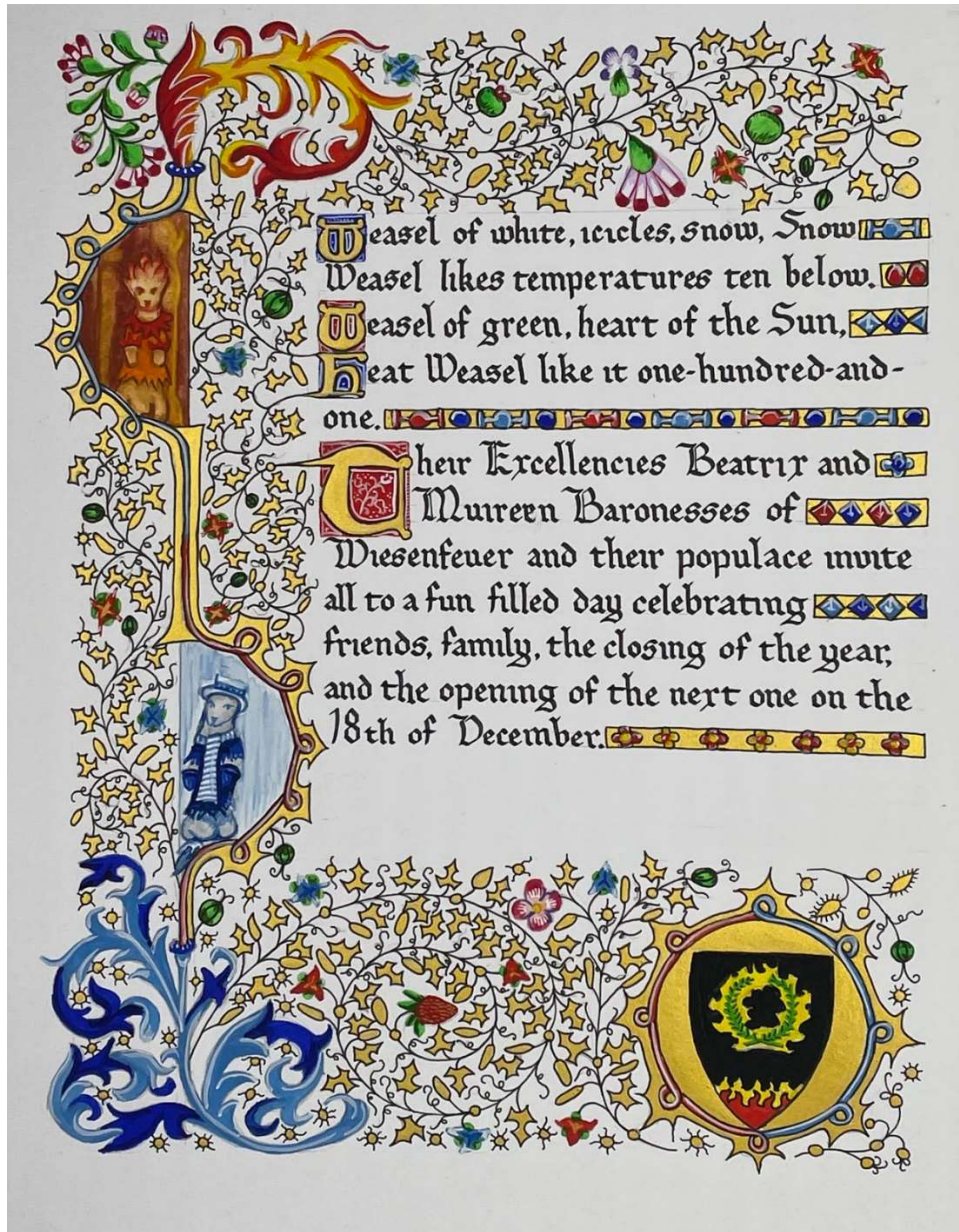 Weasel of white, icicles, snow, Snow
Weasel likes temperatures ten below.
Weasel of green, heart of the Sun,
Heat Weasel like it one-hundred-and-
one.
Their Excellencies Beatrix and
Muireen Baronesses of
Wiesenfeuer and their populace invite
all to a fun filled day celebrating
friends, family, the closing of the year,
and the opening of the next one on the
18th of December.